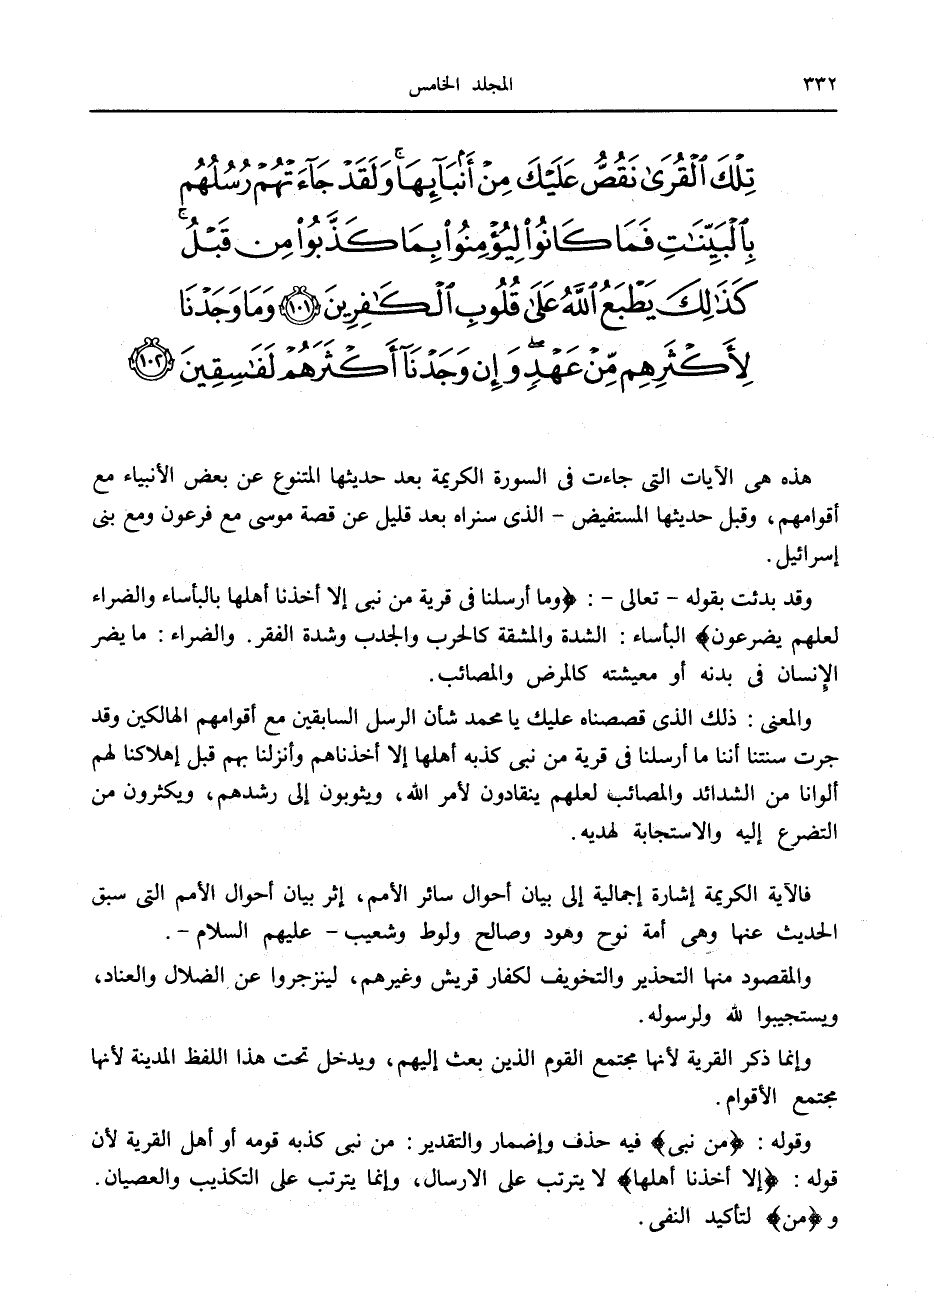 ٣٣٢ المجلد الخامس
تِلْكَ ٱلْقُرَىٰ نَقُصُّ عَلَيْكَ مِنْ أَنۢبَآئِهَا ۚ وَلَقَدْ جَآءَتْهُمْ رُسُلُهُم
بِٱلْبَيِّنَٰتِ فَمَا كَانُوا۟ لِيُؤْمِنُوا۟ بِمَا كَذَّبُوا۟ مِن قَبْلُ ۚ
كَذَٰلِكَ يَطْبَعُ ٱللَّهُ عَلَىٰ قُلُوبِ ٱلْكَٰفِرِينَ ١٠١ وَمَا وَجَدْنَا
لِأَكْثَرِهِم مِّنْ عَهْدٍ ۖ وَإِن وَجَدْنَآ أَكْثَرَهُمْ لَفَٰسِقِينَ ١٠٢
هذه هى الآيات التى جاءت فى السورة الكريمة بعد حديثها المتنوع عن بعض الأنبياء مع
أقوامهم، وقبل حديثها المستفيض - الذى سنراه بعد قليل عن قصة موسى مع فرعون ومع بنى
إسرائيل.
وقد بدئت بقوله - تعالى - : ﴿وما أرسلنا فى قرية من نبى إلا أخذنا أهلها بالبأساء والضراء
لعلهم يضرعون﴾ البأساء : الشدة والمشقة كالحرب والجدب وشدة الفقر. والضراء : ما يضر
الإنسان فى بدنه أو معيشته كالمرض والمصائب.
والمعنى : ذلك الذى قصصناه عليك يا محمد شأن الرسل السابقين مع أقوامهم الهالكين وقد
جرت سنتنا أننا ما أرسلنا فى قرية من نبى كذبه أهلها إلا أخذناهم وأنزلنا بهم قبل إهلاكنا لهم
ألوانا من الشدائد والمصائب لعلهم ينقادون لأمر الله، ويثوبون إلى رشدهم، ويكثرون من
التضرع إليه والاستجابة لهديه.
فالآية الكريمة إشارة إجمالية إلى بيان أحوال سائر الأمم، إثر بيان أحوال الأمم التى سبق
الحديث عنها وهى أمة نوح وهود وصالح ولوط وشعيب - عليهم السلام -.
والمقصود منها التحذير والتخويف لكفار قريش وغيرهم، لينزجروا عن الضلال والعناد،
ويستجيبوا لله ولرسوله.
وإنما ذكر القرية لأنها مجتمع القوم الذين بعث إليهم، ويدخل تحت هذا اللفظ المدينة لأنها
مجتمع الأقوام.
وقوله : ﴿من نبى﴾ فيه حذف وإضمار والتقدير : من نبى كذبه قومه أو أهل القرية لأن
قوله : ﴿إلا أخذنا أهلها﴾ لا يترتب على الارسال، وإنما يترتب على التكذيب والعصيان.
و ﴿من﴾ لتأكيد النفى.